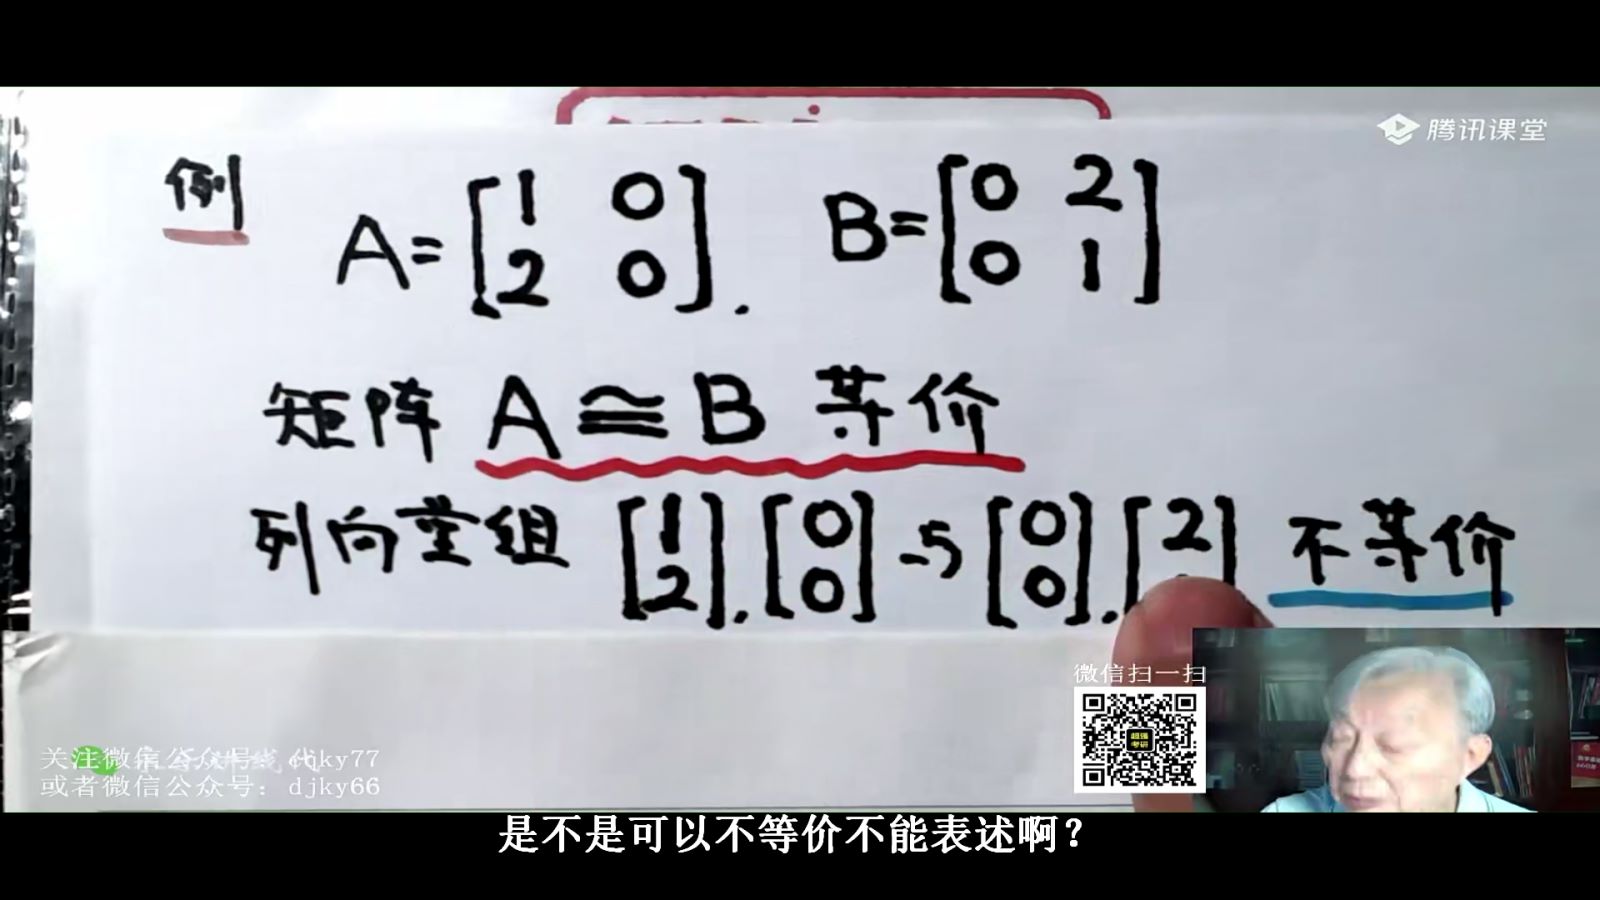 腾讯课堂
例
A=[1 0
2 0].
B=[0 2
0 1]
矩阵 A≅B 等价
列向量组 [1
2].[0
0]与[0
0].[2 不等价
微信扫一扫
超强
考研
关注微信公众号：djky77
或者微信公众号：djky66
是不是可以不等价不能表述啊？